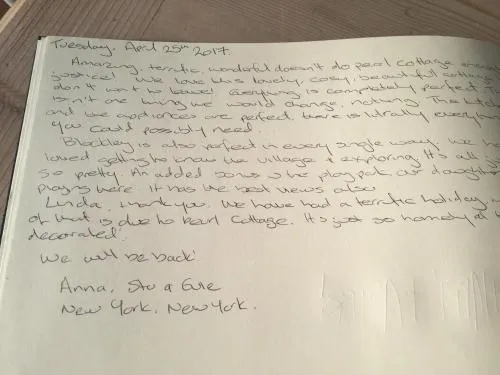 Tuesday, April 25th 2017.
Amazing, terrific, wonderful doesn't do pearl Cottage enough
justice! We love this lovely, cosy, beautiful cottage
don't want to leave! Everything is completely perfect. T
isn't one thing we would change, nothing. The kitch
and the appliances are perfect, there is litrally everyth
you could possibly need.
Blockley is also perfect in every single way. We ha
loved getting to know the village & exploring. It's all j
so pretty. An added bonus is the play park, our daught
playing here. It has the best views also.
Linda, thank you. We have had a terrific holiday,
of that is due to Pearl Cottage. It's just so homely at
decorated!
We will be back!
Anna, Stu &
New York, New York.